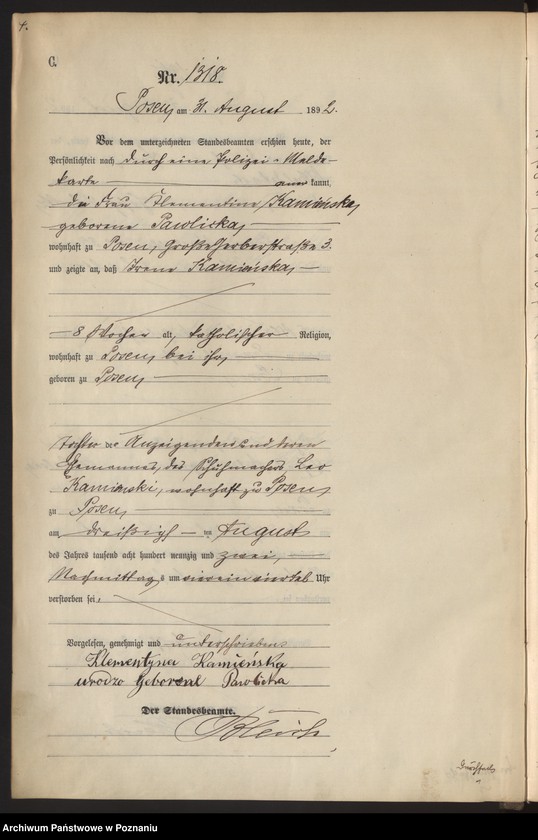 4.
C.
Nr. 1318.
Posen, am 31. August 1892.
Vor dem unterzeichneten Standesbeamten erschien heute, der
Persönlichkeit nach durch eine Polizei-Melde-
karte kannt,
die Frau Klementine Kamińska,
geborene Pawlicka,
wohnhaft zu Posen, Große Gerberstraße 3.
und zeigte an, daß Irene Kamieńska,
8 Wochen alt, katholischer Religion,
wohnhaft zu Posen, bei ihr,
geboren zu Posen,
Tochter der Anzeigenden und deren
Ehemannes, des Schuhmachers Leo
Kamieński, wohnhaft zu Posen,
zu Posen,
am dreißigsten August
des Jahres tausend acht hundert neunzig und zwei,
Nachmittags um vier ein viertel Uhr
verstorben sei.
Vorgelesen, genehmigt und unterschrieben
Klementyna Kamieńska
urodzo Pawlicka
Der Standesbeamte.
Archiwum Państwowe w Poznaniu